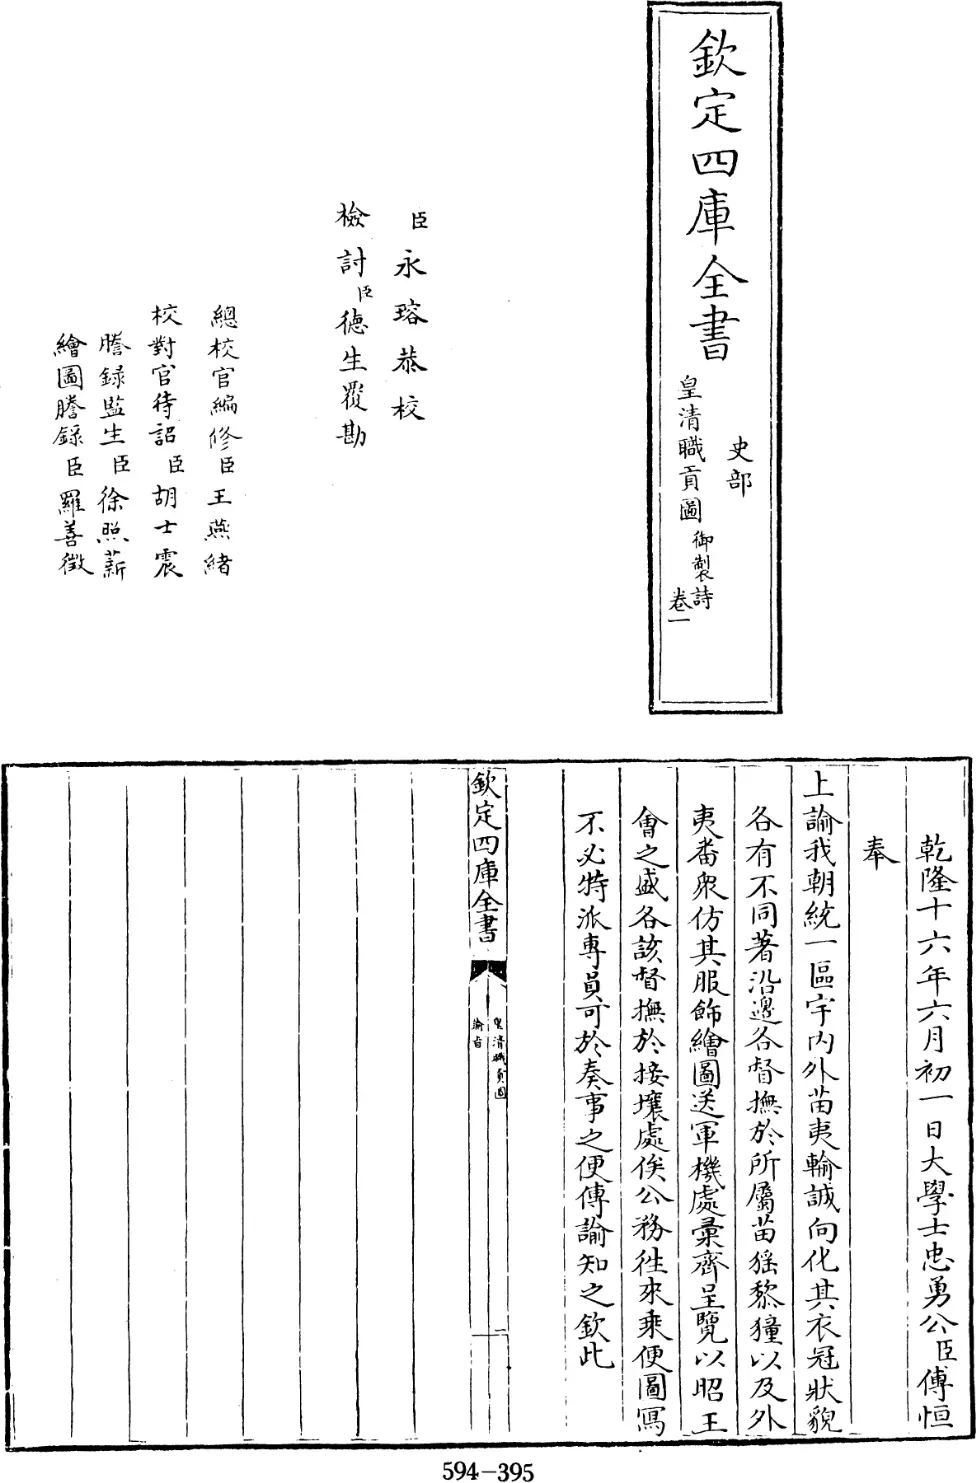 欽定四庫全書
史部
皇清職貢圖
御製詩
卷一
臣永瑢恭校
檢討臣德生覆勘
總校官編修臣王燕緒
校對官待詔臣胡士震
謄錄監生臣徐照薪
繪圖謄錄臣羅善徵
乾隆十六年六月初一日大學士忠勇公臣傅恒
奉
上諭我朝統一區宇內外苗夷輸誠向化其衣冠狀貌
各有不同著沿邊各督撫於所屬苗猺黎獞以及外
夷番衆仿其服飾繪圖送軍機處彙齊呈覽以昭王
會之盛各該督撫於接壤處俟公務往來乘便圖寫
不必特派專員可於奏事之便傳諭知之欽此
欽定四庫全書
皇清職貢圖
諭旨
一
594-395